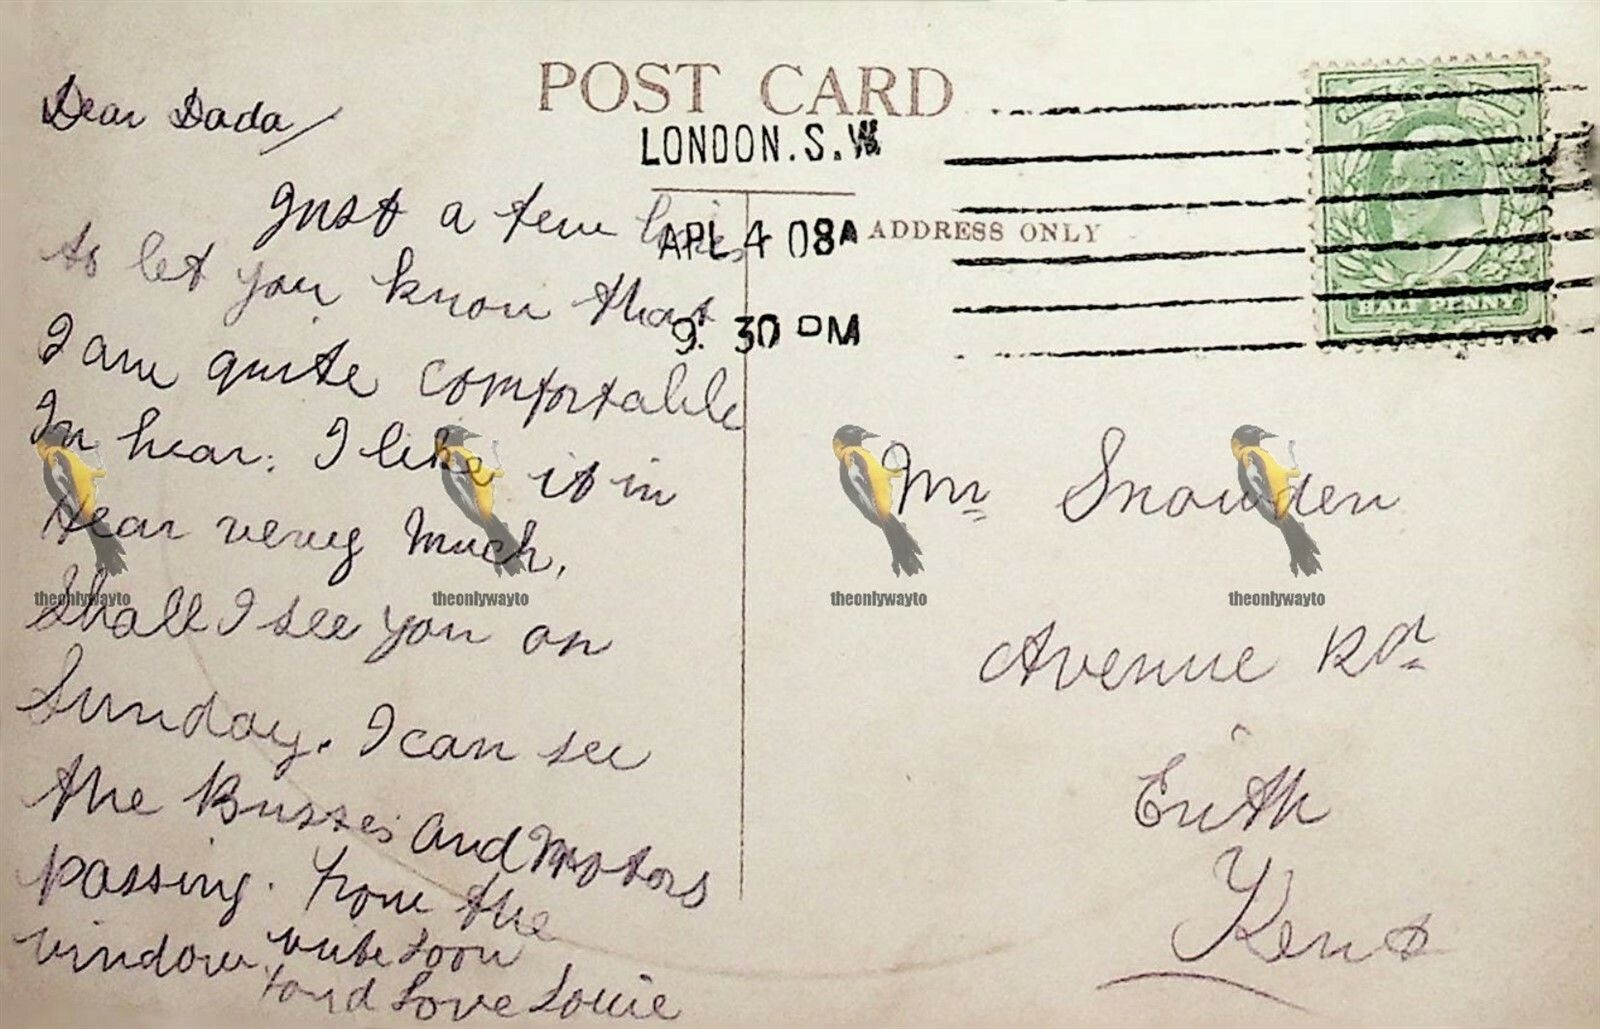 POST CARD
LONDON. S.W
APL 4 08A
9. 30 PM
ADDRESS ONLY
HALF PENNY
Dear Dada/
Just a few lines
to let you know that
I am quite comfortable
In hear. I like it in
Hear verey Much.
Shall I see you on
Sunday. I can see
the Busses and Motors
passing. from the
window. write soon
fond Love Louie
Mr Snowden
Avenue Rd
Erith
Kent
theonlywayto
theonlywayto
theonlywayto
theonlywayto